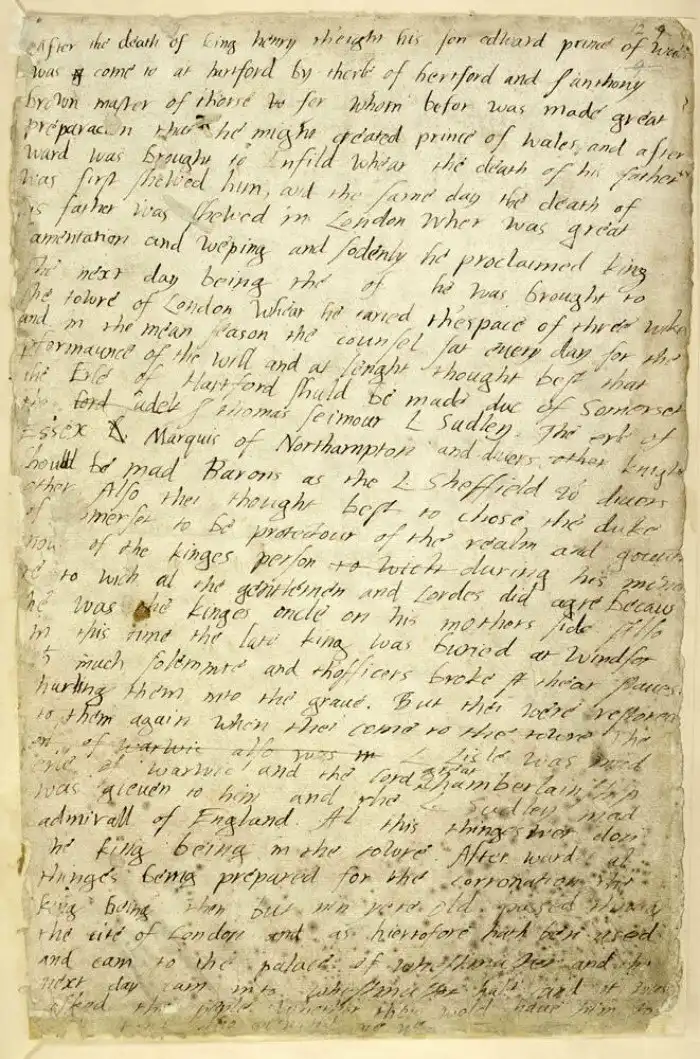 12
After the death of King Henry theight his son edward prince of
was come to at hartford by therle of hertford and S anthony
brown master of thorse to for whom befor was made great
preparacon that he might created prince of wales, and after
ward was brought to Enfild whear the death of his father
was first shewed him, and the same day the death of
his father was shewed in London wher was great
lamentation and weping and sodenly he proclaimed king
The next day being the of he was brought to
the towre of London whear he taried thespace of three wekes
and in the mean season the counsel sat every day for the
performaunce of the will and at lenght thought best that
the Erle of Hartford shuld be made duc of Somerset
lord Sudeley S thomas Seimour L Sudley. The erl of
Essex Marquis of Northampton and divers other knights
should be mad Barons as the L Sheffield to divers
other. Also thei thought best to chose the duke
of somerset to be protectour of the realm and gover
nour of the kinges person to wich during his minori
te to wich al the gentlemen and Lordes did agre becaus
he was the kinges oncle on his mothers side Also
in this time the late king was buried at Windsor
much solemnite and thofficers broke theiar staves
hurling them into the grave. But thei were restored
to them again when thei come to the towre The
of warwic also was in L Lisle was
erle of warwic and the lord great chamberlainship
was geeven to him and the L Sudley mad
admirall of England. Al this thinges wer don
the king being in the towre. After ward al
thinges being prepared for the corronation the
king being then but nin yere old passed
the cite of London and as hiertofore hath bene used
and cam to the palace of westmaster and the
next day cam into westmaster hall and it was
asked the peple whether they wold have him to